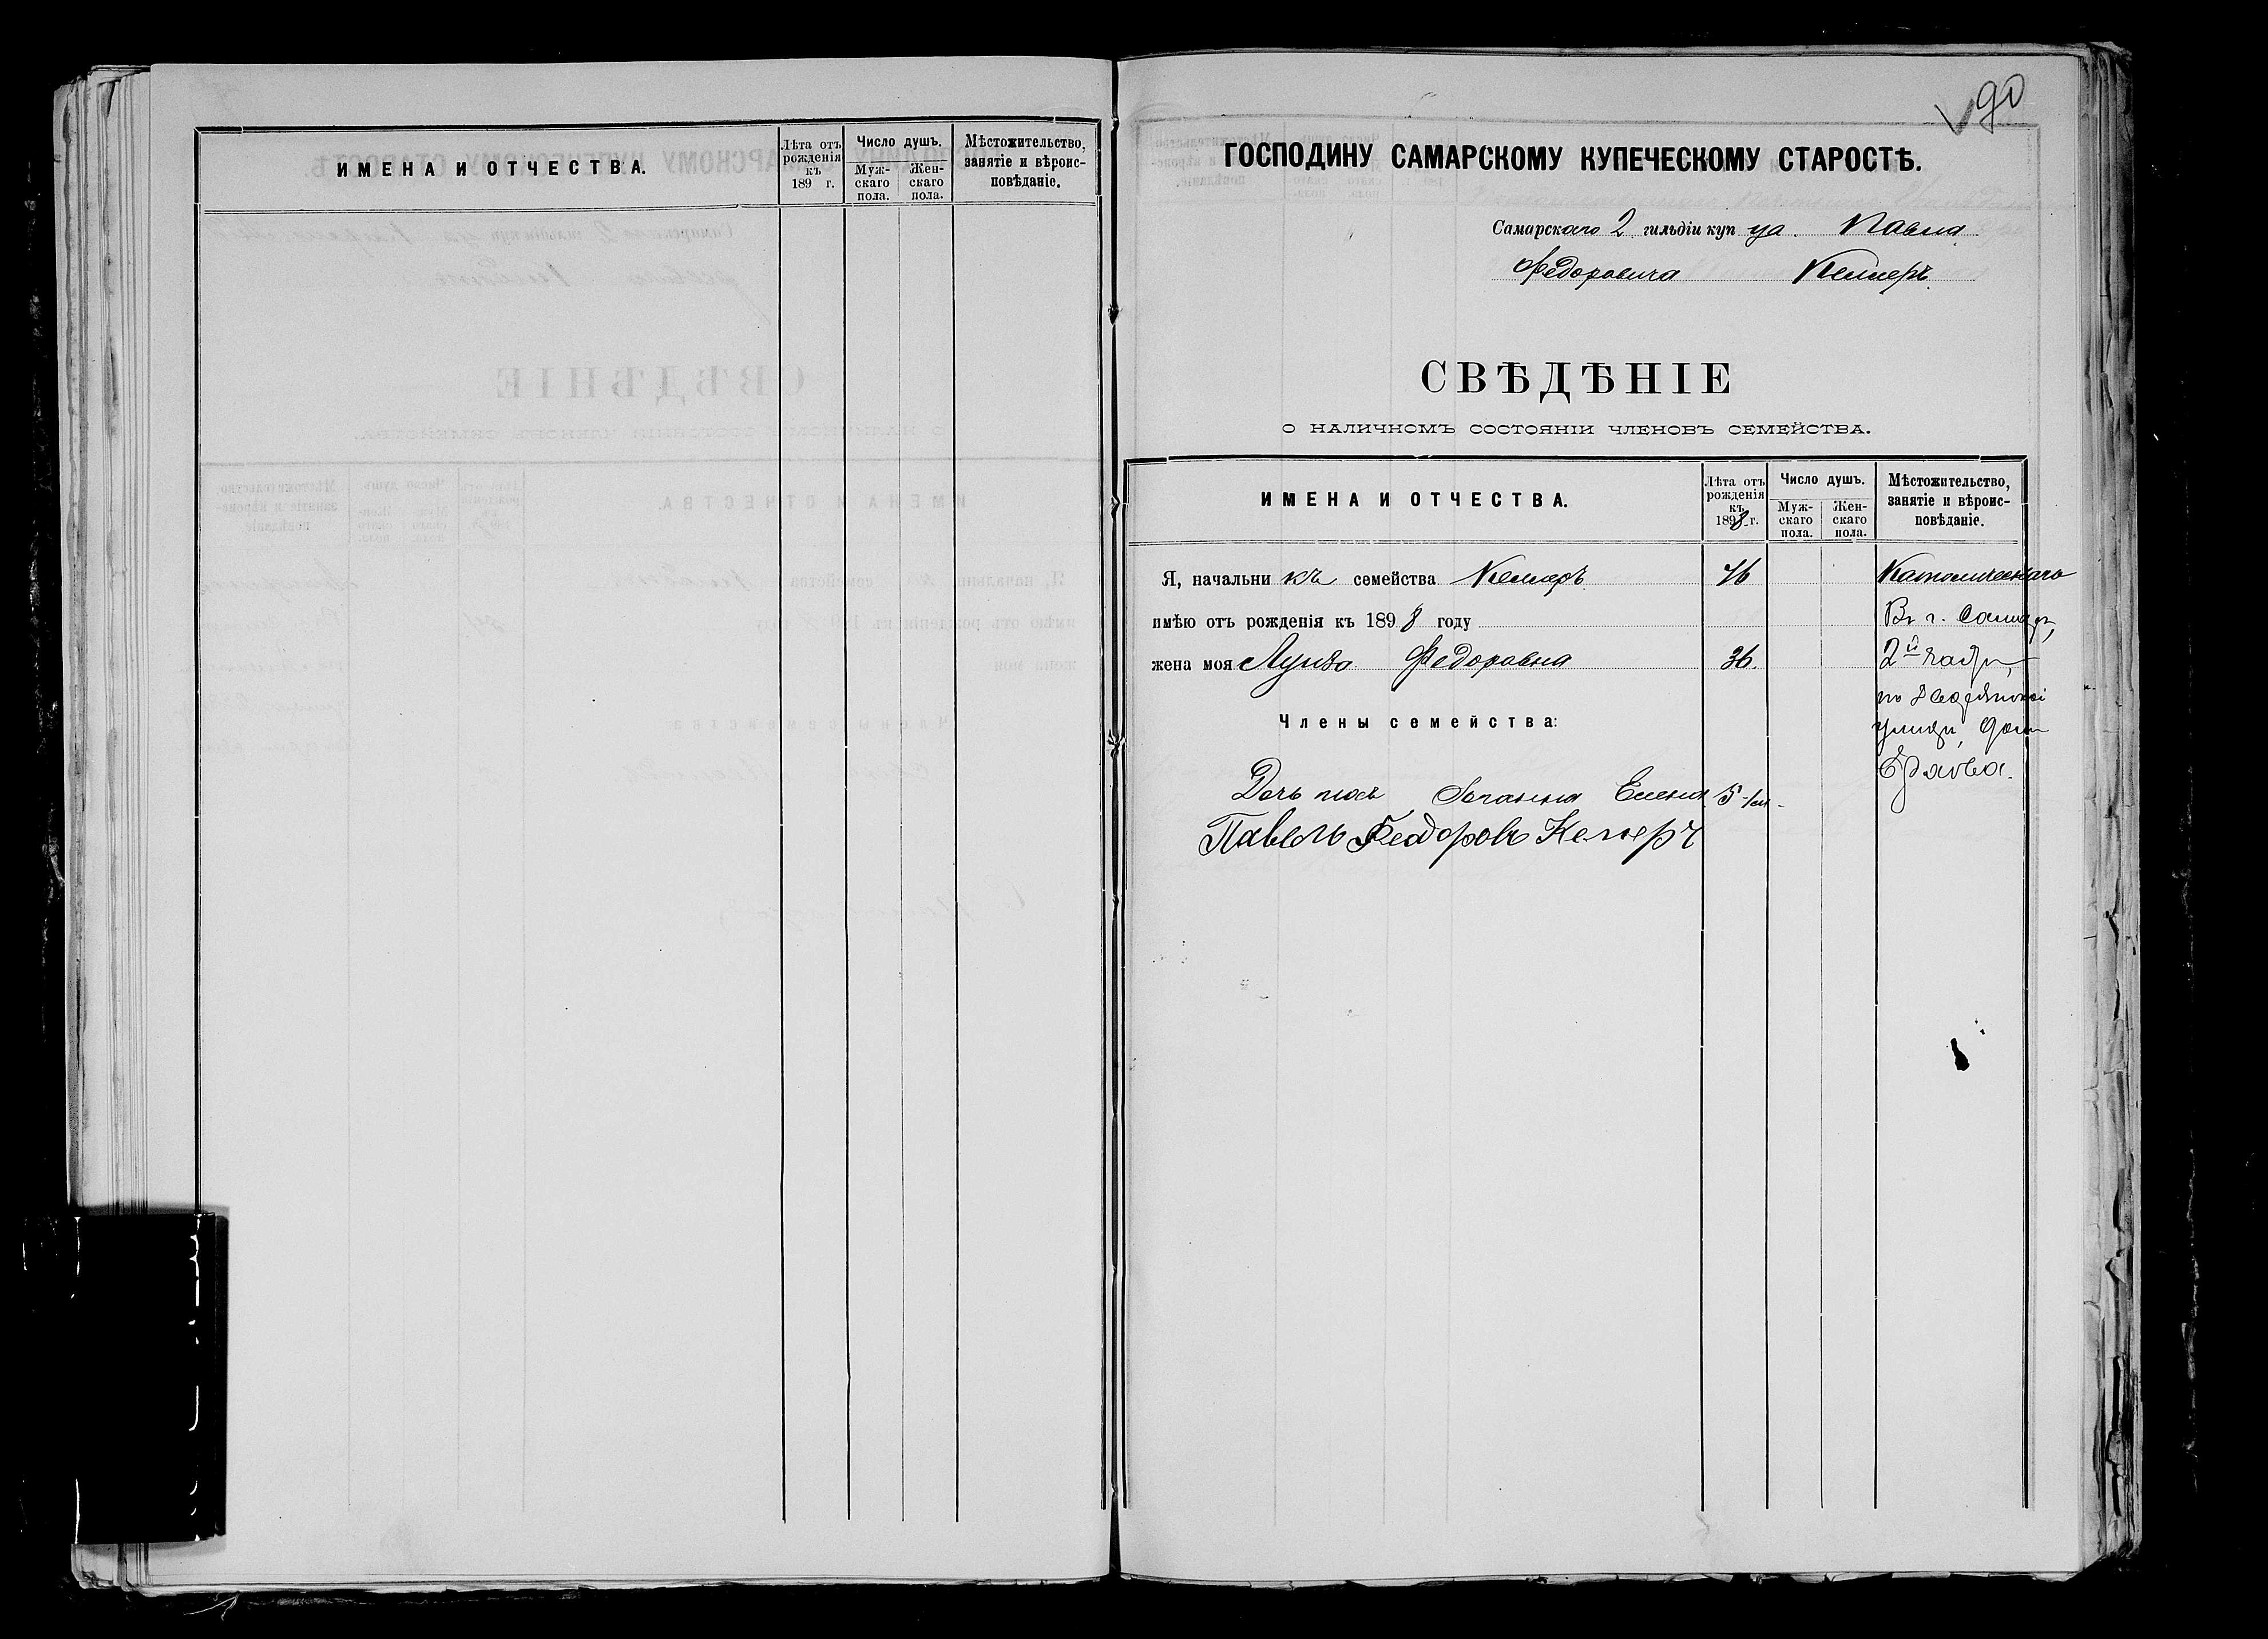 ИМЕНА И ОТЧЕСТВА.
Лѣта отъ рожденія къ 189 г.
Число душъ.
Муж-скаго пола.
Жен-скаго пола.
Мѣстожительство, занятіе и вѣроис-повѣданіе.
90
ГОСПОДИНУ САМАРСКОМУ КУПЕЧЕСКОМУ СТАРОСТѢ.
Самарскаго 2 гильдіи купца Павла
Федоровича Келлеръ
СВѢДѢНІЕ
О НАЛИЧНОМЪ СОСТОЯНІИ ЧЛЕНОВЪ СЕМЕЙСТВА.
ИМЕНА И ОТЧЕСТВА.
Лѣта отъ рожденія къ 1898 г.
Число душъ.
Муж-скаго пола.
Жен-скаго пола.
Мѣстожительство, занятіе и вѣроис-повѣданіе.
Я, начальникъ семейства Келлеръ 46 Католическаго
имѣю отъ рожденія къ 1898 году Въ г. Самарѣ,
жена моя Луиза Федоровна 36. 2й части,
по Дворянской
Члены семейства: улицѣ, домъ
Дочь моя Елена 5
Павелъ Феодоровъ Келлеръ